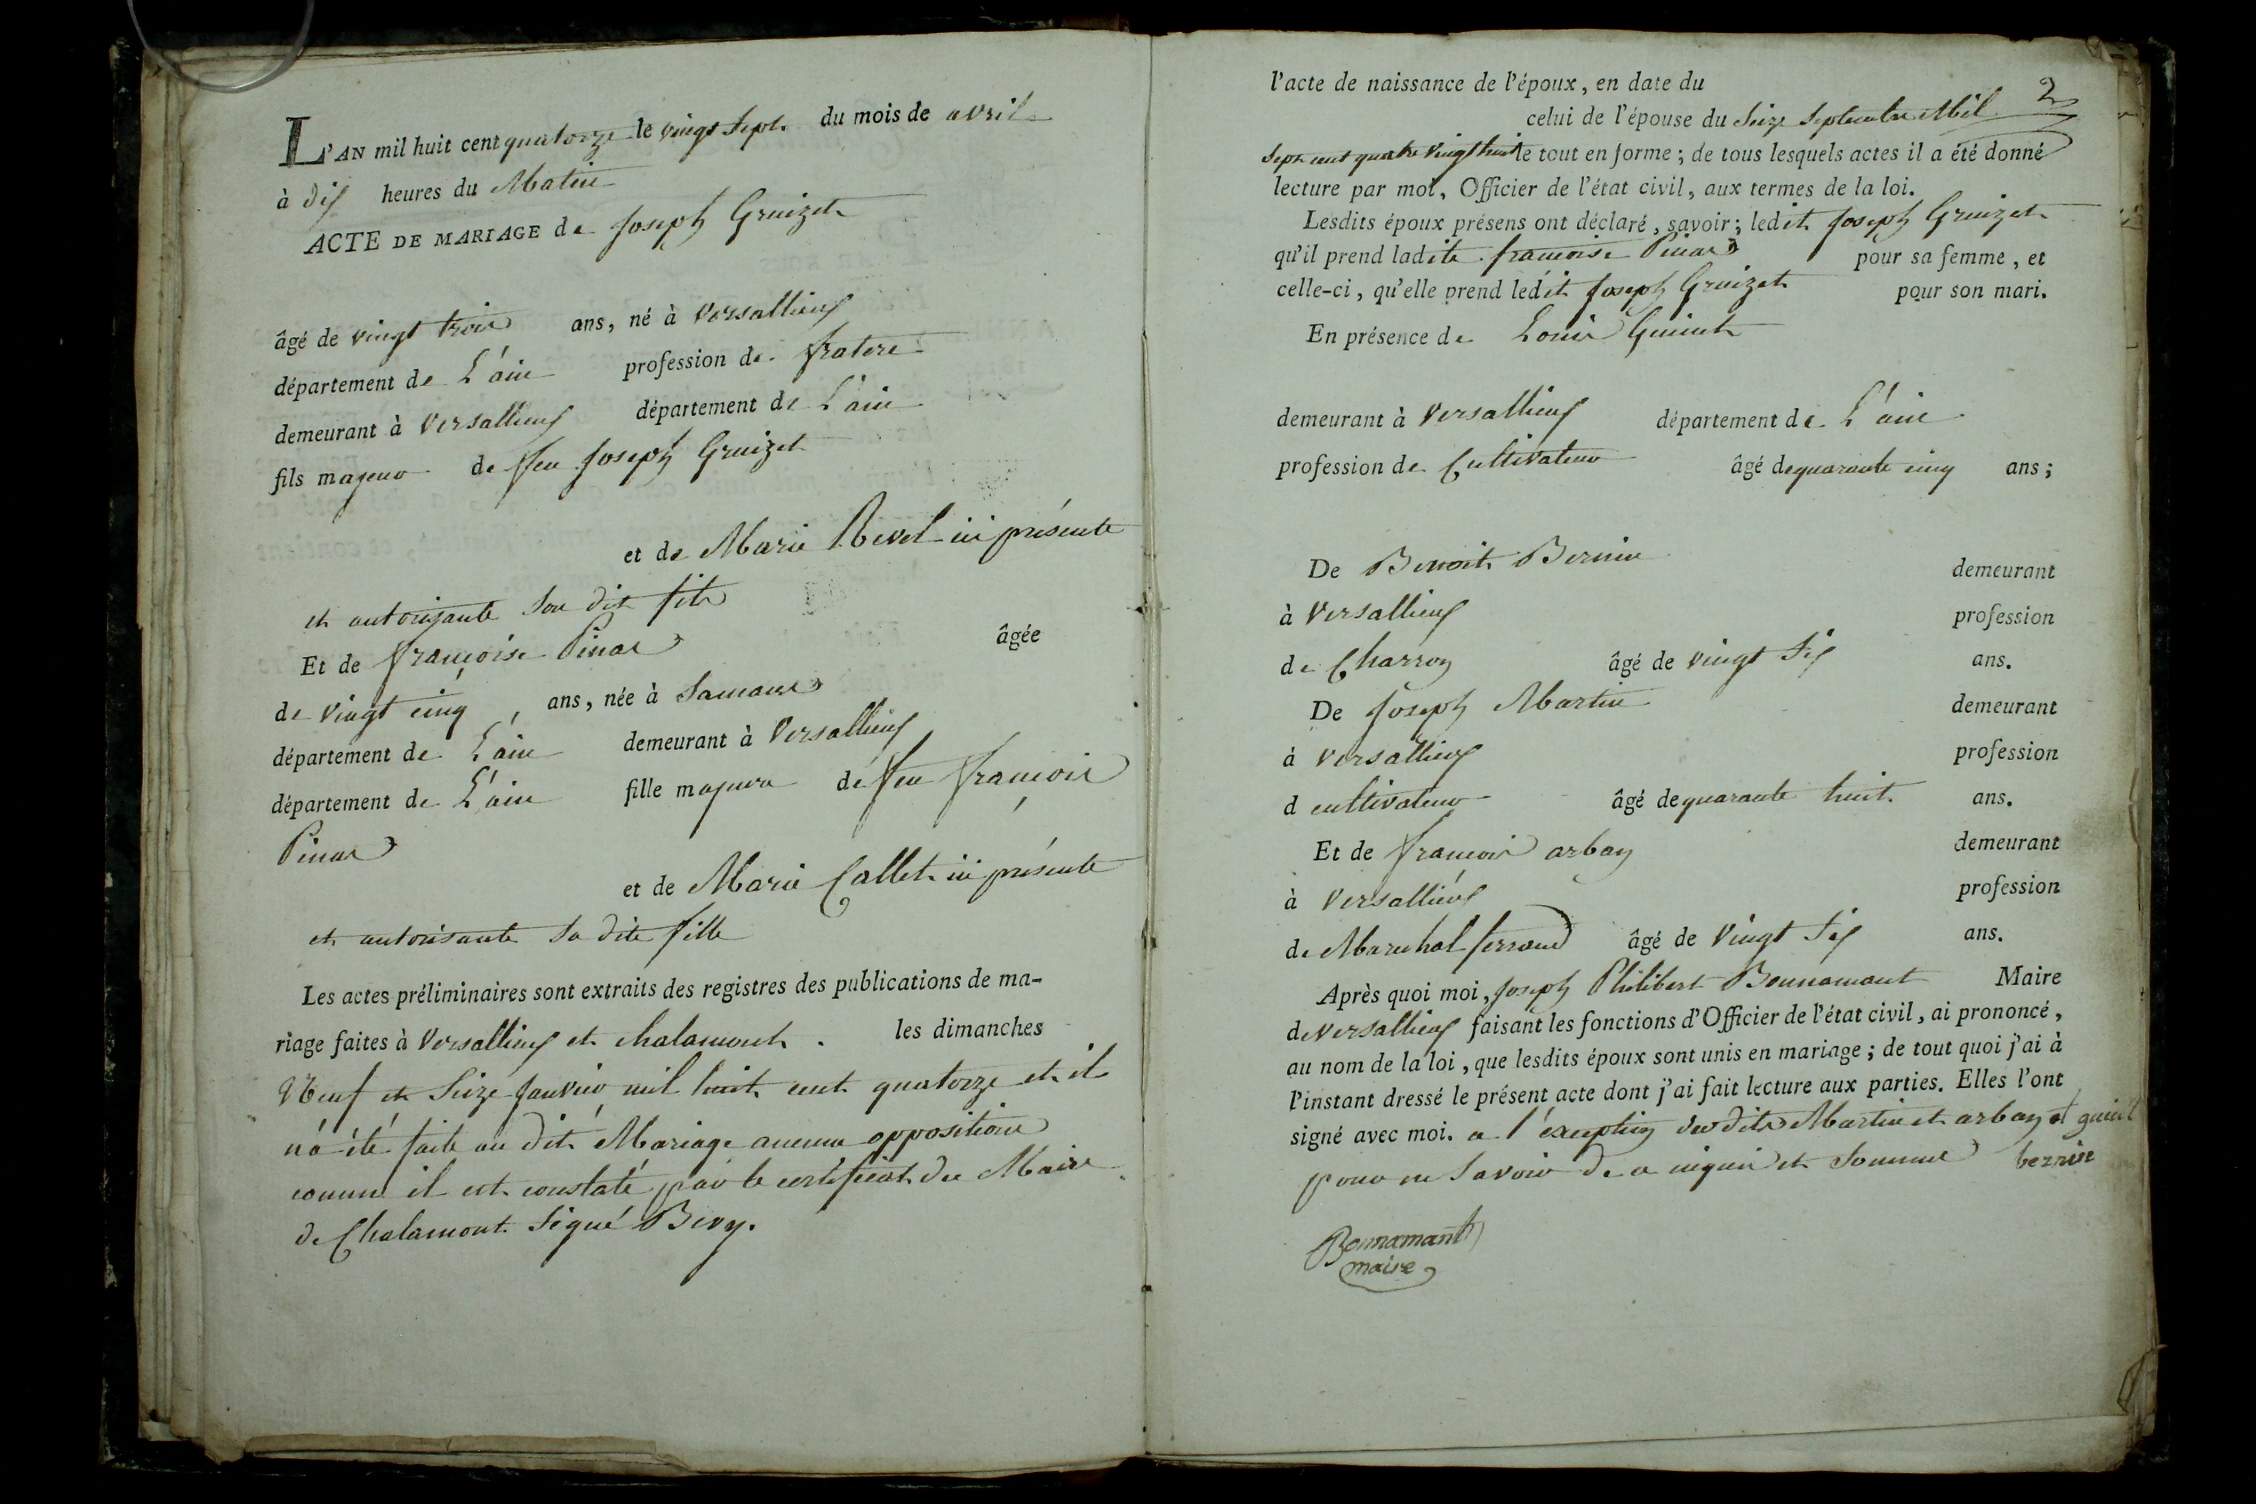 L'AN mil huit cent quatorze le vingt sept du mois de avril
à dix heures du Matin
ACTE DE MARIAGE de Joseph Gruizet
âgé de vingt trois ans, né à Versallieux
département de L'ain profession de fratere
demeurant à Versallieux département de L'ain
fils majeur de feu Joseph Gruizet
et de Marie Revel ici présente
et autorisante son dit fils
Et de françoise Pinard âgée
de vingt cinq ans, née à Samans
département de L'ain demeurant à Versallieux
département de L'ain fille majeure de feu françois
Pinard
et de Marie Callet ici présente
et autorisante sa dite fille
Les actes préliminaires sont extraits des registres des publications de ma-
riage faites à Versallieux et chalamont . les dimanches
Neuf et Seize Janvier mil huit cent quatorze et il
n'a été faite au dit Mariage aucune opposition
comme il est constaté par le certificat du Maire
de Chalamont Signé Bevy.
2
l'acte de naissance de l'époux, en date du
celui de l'épouse du Seize Septembre Mil
Sept cent quatre vingt huit le tout en forme ; de tous lesquels actes il a été donné
lecture par moi, Officier de l'état civil, aux termes de la loi.
Lesdits époux présens ont déclaré, savoir ; ledit Joseph Gruizet
qu'il prend ladite françoise Pinard pour sa femme, et
celle-ci, qu'elle prend ledit Joseph Gruizet pour son mari.
En présence de Louis Guinet
demeurant à Versallieux département de L'ain
profession de Cultivateur âgé de quarante cinq ans ;
De Benoit Bernin demeurant
à Versallieux profession
de Charron âgé de vingt Six ans.
De Joseph Martin demeurant
à Versallieux profession
d cultivateur âgé de quarante huit ans.
Et de françois arban demeurant
à Versallieux profession
de Marechal ferrand âgé de vingt Six ans.
Après quoi moi, Joseph Philibert Bonnamant Maire
de Versallieux faisant les fonctions d'Officier de l'état civil, ai prononcé,
au nom de la loi, que lesdits époux sont unis en mariage ; de tout quoi j'ai à
l'instant dressé le présent acte dont j'ai fait lecture aux parties. Elles l'ont
signé avec moi. a l'exception des dits Martin et arban et guinet
pour ne Savoir de a enquis et Sommé bernin
Bonnamant
maire